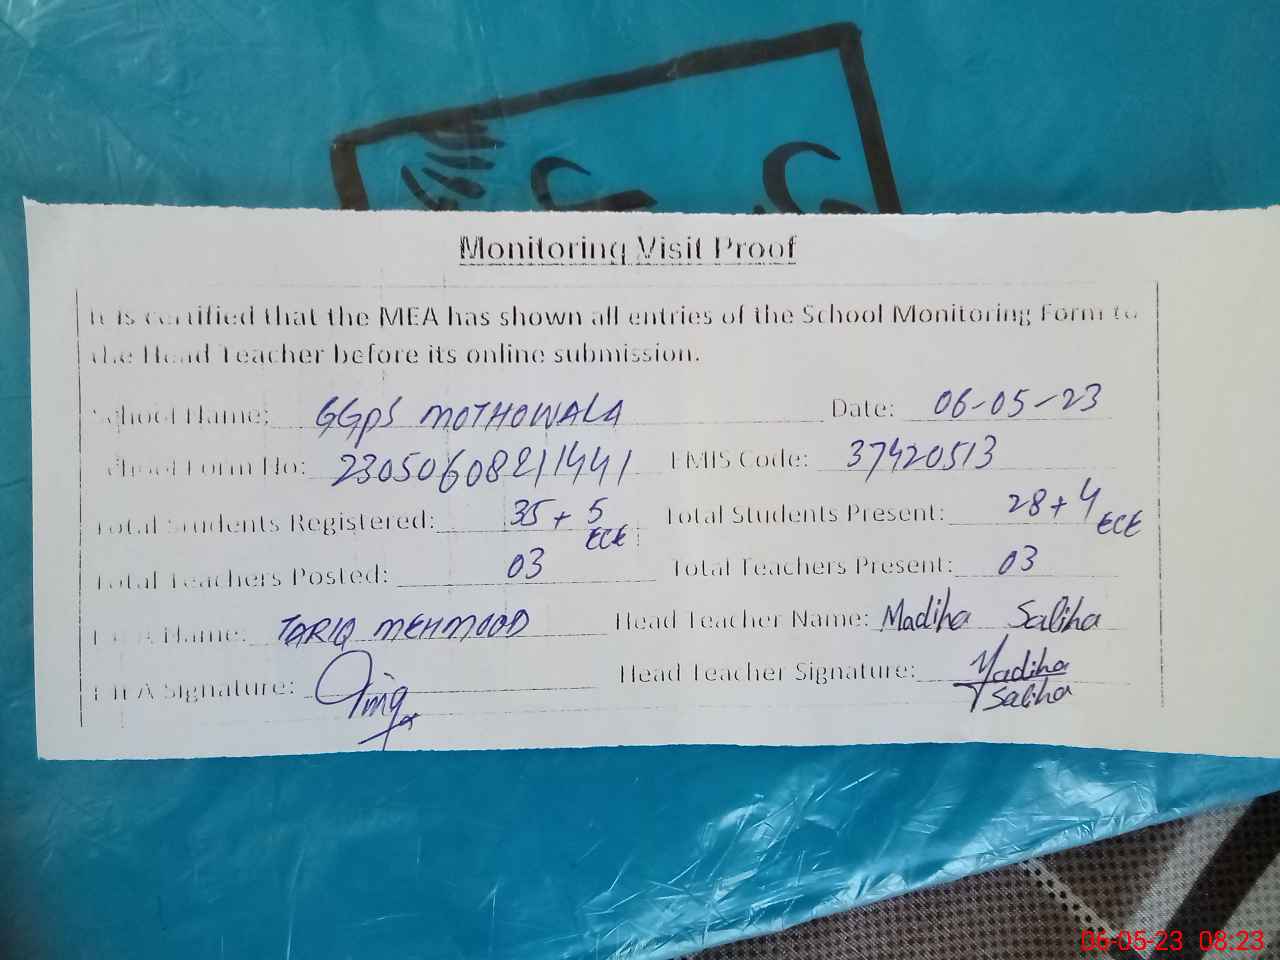 Monitoring Visit Proof
It is certified that the MEA has shown all entries of the School Monitoring Form to
the Head Teacher before its online submission.
School Name: GGPS MOTHOWALA Date: 06-05-23
School Form No: 23050608211441 EMIS Code: 37420513
Total Students Registered: 35 + 5 ECE Total Students Present: 28 + 4 ECE
Total Teachers Posted: 03 Total Teachers Present: 03
MEA Name: TARIQ MEHMOOD Head Teacher Name: Madiha Saliha
MEA Signature: Head Teacher Signature: Madiha
Saliha
06-05-23 08:23